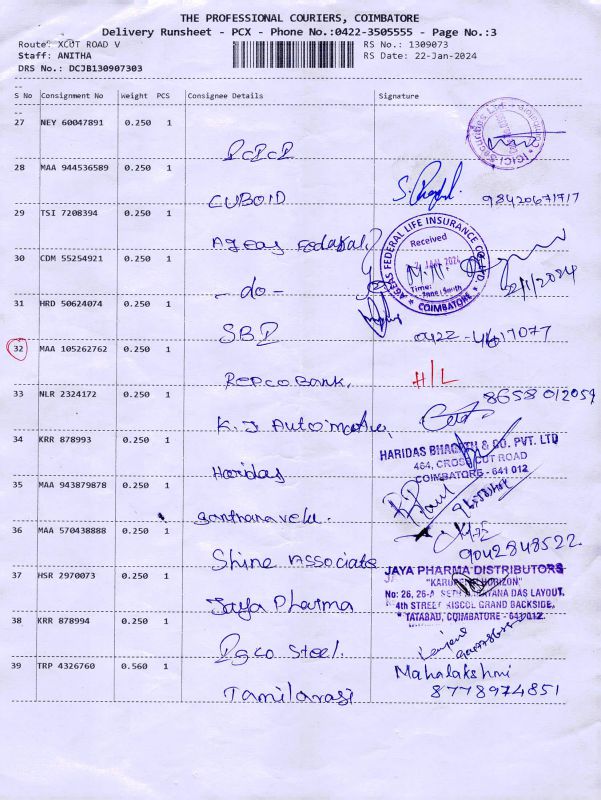 THE PROFESSIONAL COURIERS, COIMBATORE
Delivery Runsheet - PCX - Phone No.:0422-3505555 - Page No.:3
Route: XCUT ROAD V
RS No.: 1309073
Staff: ANITHA
RS Date: 22-Jan-2024
DRS No.: DCJB130907303
S No Consignment No Weight PCS Consignee Details Signature
27 NEY 60047891 0.250 1
ICICI Securities Ltd.
28 MAA 944536589 0.250 1
CUBOID 98420671717
29 TSI 7208394 0.250 1
Ageas Federal
AGEAS FEDERAL LIFE INSURANCE CO LTD
Received
JAN 2024
Time:
* COIMBATORE *
30 CDM 55254921 0.250 1
- do -
31 HRD 50624074 0.250 1
SBI 0422-4617077
32 MAA 105262762 0.250 1
Repco Bank, H/L
33 NLR 2324172 0.250 1
8658012059
K.J. Automotive,
34 KRR 878993 0.250 1
HARIDAS BHAGATH & CO. PVT. LTD
464, CROSS CUT ROAD
COIMBATORE - 641 012
Haridas
35 MAA 943879878 0.250 1
Santhanavelu.
36 MAA 570438888 0.250 1
9042848522
Shine Associate
37 HSR 2970073 0.250 1
JAYA PHARMA DISTRIBUTORS
4th STREET, KISCOL GRAND BACKSIDE,
* TATABAD, COIMBATORE - 641 012.
Jaya Pharma
38 KRR 878994 0.250 1
Steel.
39 TRP 4326760 0.560 1
Mahalakshmi
8778974851
Tamilarasi